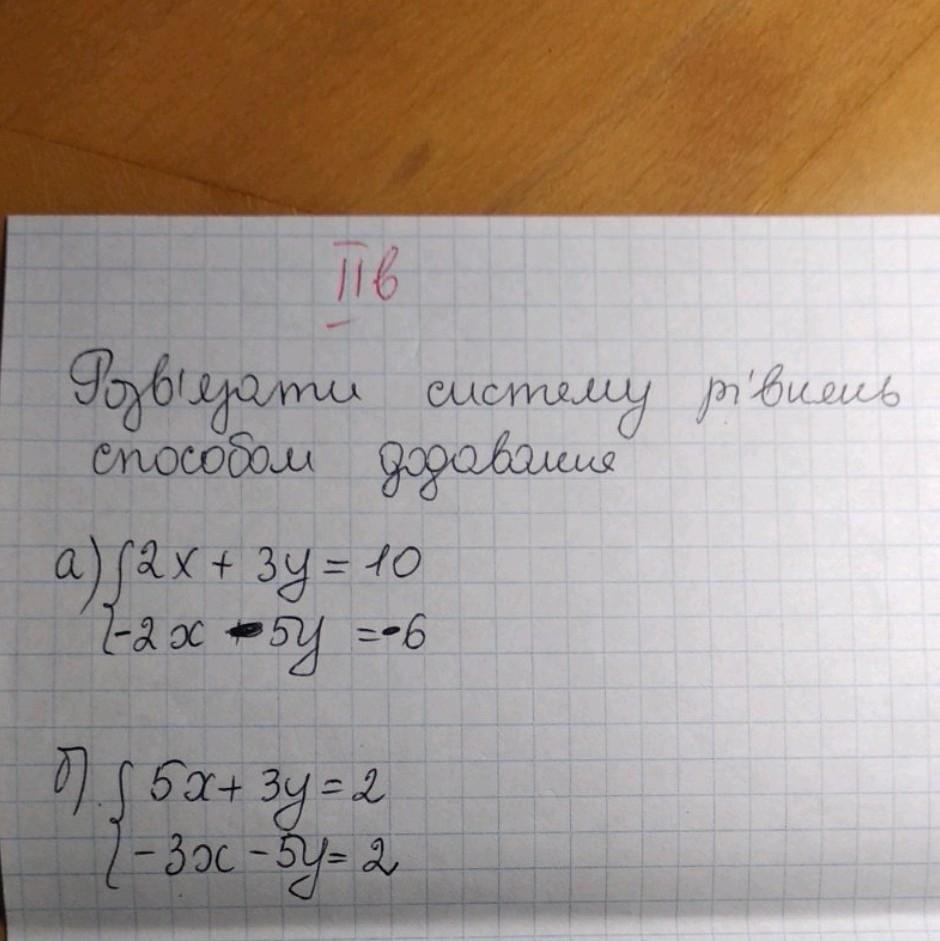 IIв
Розв'язати систему рівнень
способом додавання
а) { 2x + 3y = 10
-2x - 5y = -6
б) { 5x + 3y = 2
-3x - 5y = 2